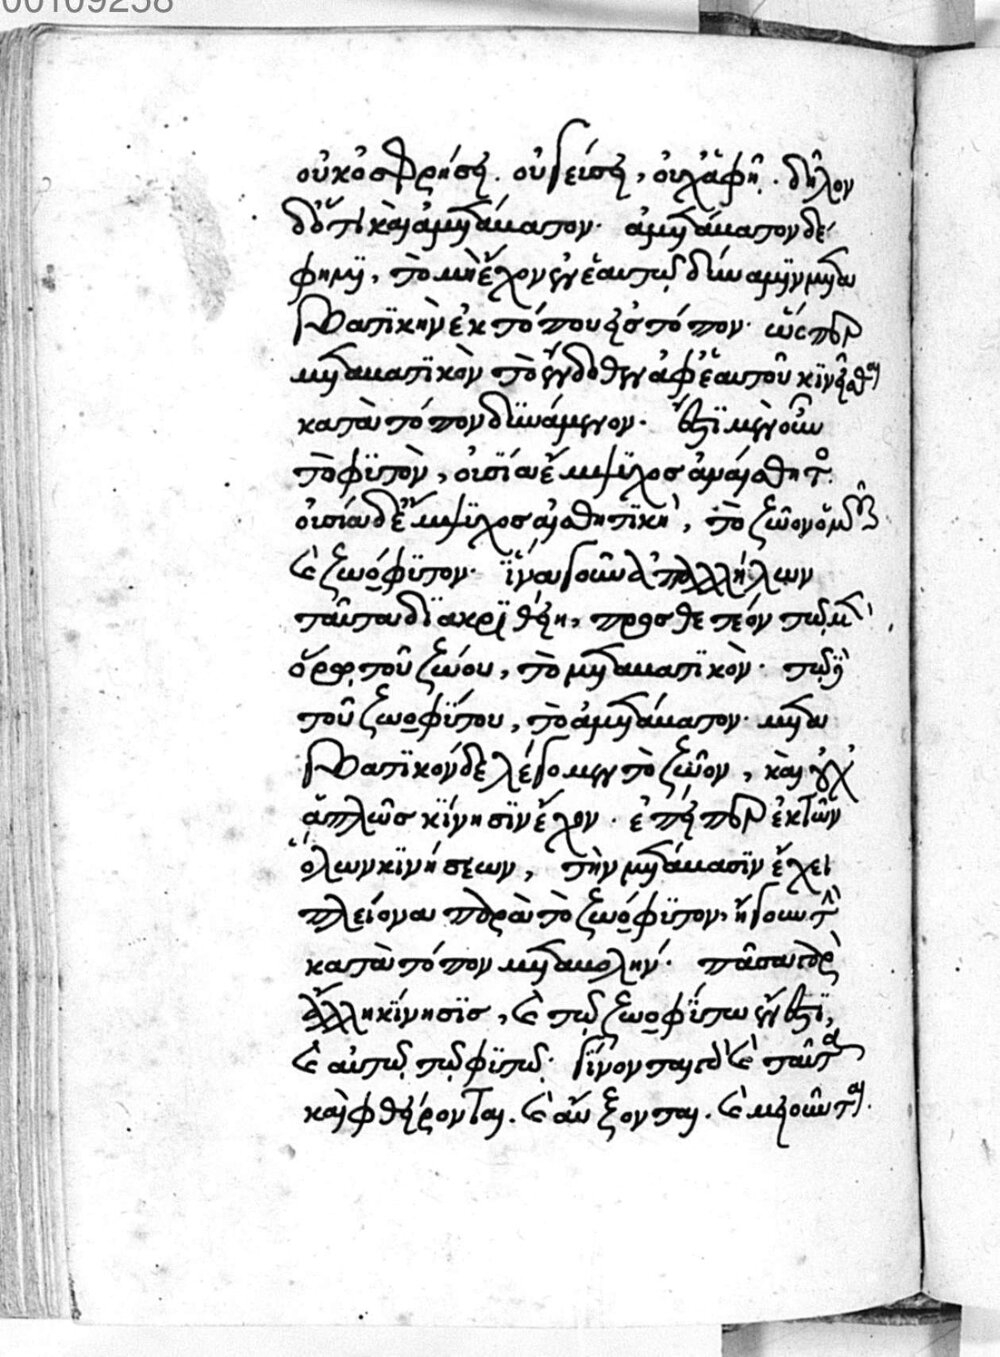 00109258
οὐκ ὀσφρήσει. οὐ γεύσει, οὐχ ἁφῇ. δῆλον
δ' ὅτι καὶ ἀμετάβατον. ἀμετάβατον δέ
φημι, τὸ μὴ ἔχον ἐν ἑαυτῷ δύναμιν μετα
βατικὴν ἐκ τόπου εἰς τόπον. ὥσπερ
μεταβατικὸν τὸ ἔνδοθεν ἀφ' ἑαυτοῦ κινεῖσθαι
κατὰ τόπον δυνάμενον. ἔστι μὲν οὖν
τὸ φυτὸν, οὐσία ἔμψυχος ἀναίσθητος.
οὐσία δὲ ἔμψυχος αἰσθητικὴ, τὸ ζῷον ὁμοῦ
καὶ ζωόφυτον. ἵνα γοῦν ἀπ' ἀλλήλων
ταῦτα διακριθείη, προσθετέον τῷ μὲν
ὅρῳ τοῦ ζώου, τὸ μεταβατικὸν. τῷ δὲ
τοῦ ζωοφύτου, τὸ ἀμετάβατον. μετα
βατικὸν δὲ λέγομεν τὸ ζῷον, καὶ οὐχ
ἁπλῶς κίνησιν ἔχον. ἐπείπερ ἐκ τῶν
ὅλων κινήσεων, τὴν μετάβασιν ἔχει
πλείονα παρὰ τὸ ζωόφυτον, ἤγουν τὴν
κατὰ τόπον μεταβολήν. πᾶσα γὰρ
ἄλλη κίνησις, καὶ τῷ ζωοφύτῳ ἔνεστι,
καὶ αὐτῷ τῷ φυτῷ. γίνονται γὰρ καὶ ταῦτα
καὶ φθείρονται. καὶ αὔξονται. καὶ μειοῦνται.